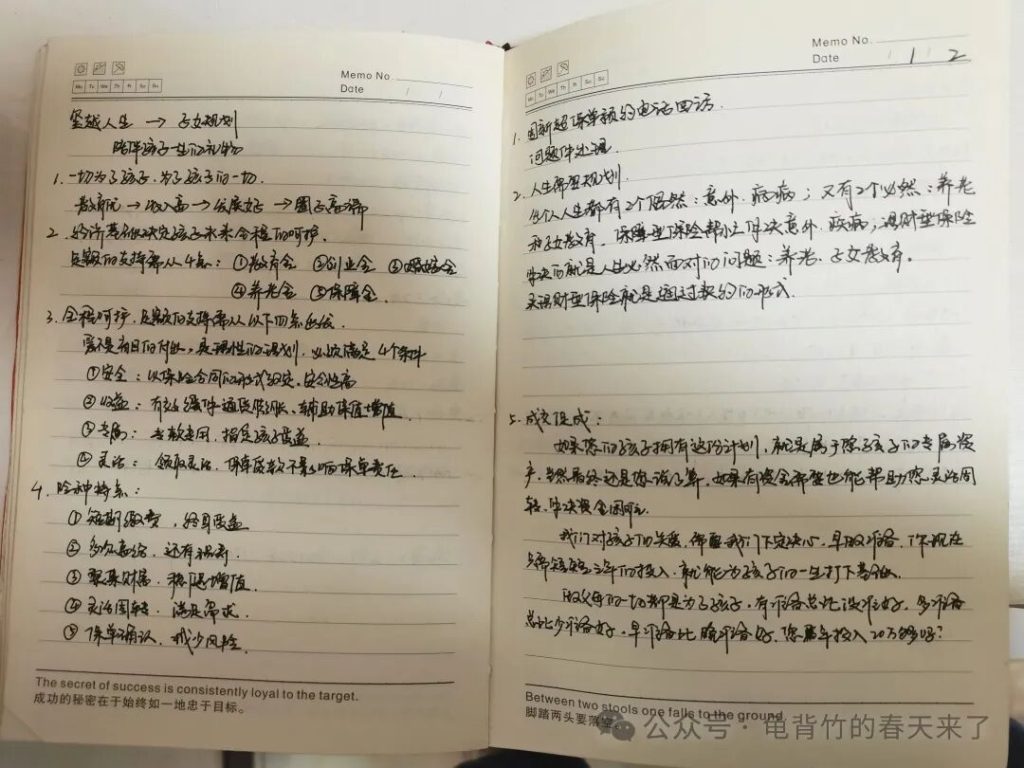 Memo No.
Date
Mo Tu We Th Fr Sa Su
坚越人生 → 子女规划
陪伴孩子一生的礼物
1. 一切为了孩子,为了孩子的一切.
教育优 → 收入高 → 发展好 → 圈子高端
2. 经济基础决定孩子未来全程的呵护.
足额的支持需从4点: ①教育金 ②创业金 ③婚嫁金
④养老金 ⑤保障金.
3. 全程呵护,足额的支持需从以下四点出发.
爱不是盲目的付出,是理性的规划.必须满足4个条件
①安全: 以保险合同的形式约定,安全性高
②收益: 有效缓解通货膨胀、辅助保值增值
③专属: 专款专用,指定孩子受益.
④灵活: 领取灵活,保单贷款不影响保单责任
4. 险种特点:
①短期缴费,终身受益
②多分高给,还有祝寿.
③聚集财富,稳健增值.
④灵活周转,满足需求.
⑤保单确认,减少风险.
The secret of success is consistently loyal to the target.
成功的秘密在于始终如一地忠于目标。
Memo No.
Date 1 2
Mo Tu We Th Fr Sa Su
1. 国新超保单预约电话回访.
问题件处理.
2. 人生需要规划.
每个人人生都有2个偶然:意外.疾病;又有2个必然:养老
和子女教育.保障型保险帮助解决意外.疾病;理财型保险
解决的就是人生必然面对的问题:养老.子女教育.
买理财型保险就是通过契约的形式.
5. 成交促成:
如果您的孩子拥有这份计划,就是属于您孩子的专属资
产.当然最终还是您说了算.如果有资金需要也能帮助您灵活周
转、解决资金困扰.
我们对孩子的关爱,需要我们下定决心,早做准备.你现在
只需短短三年的投入.就能为孩子的一生打下基础.
做父母的一切都是为了孩子,有准备总比没准备好,多准备
总比少准备好,早准备比晚准备好,您看年投入20万够吗?
Between two stools one falls to the ground.
脚踏两头要落空。
公众号·龟背竹的春天来了